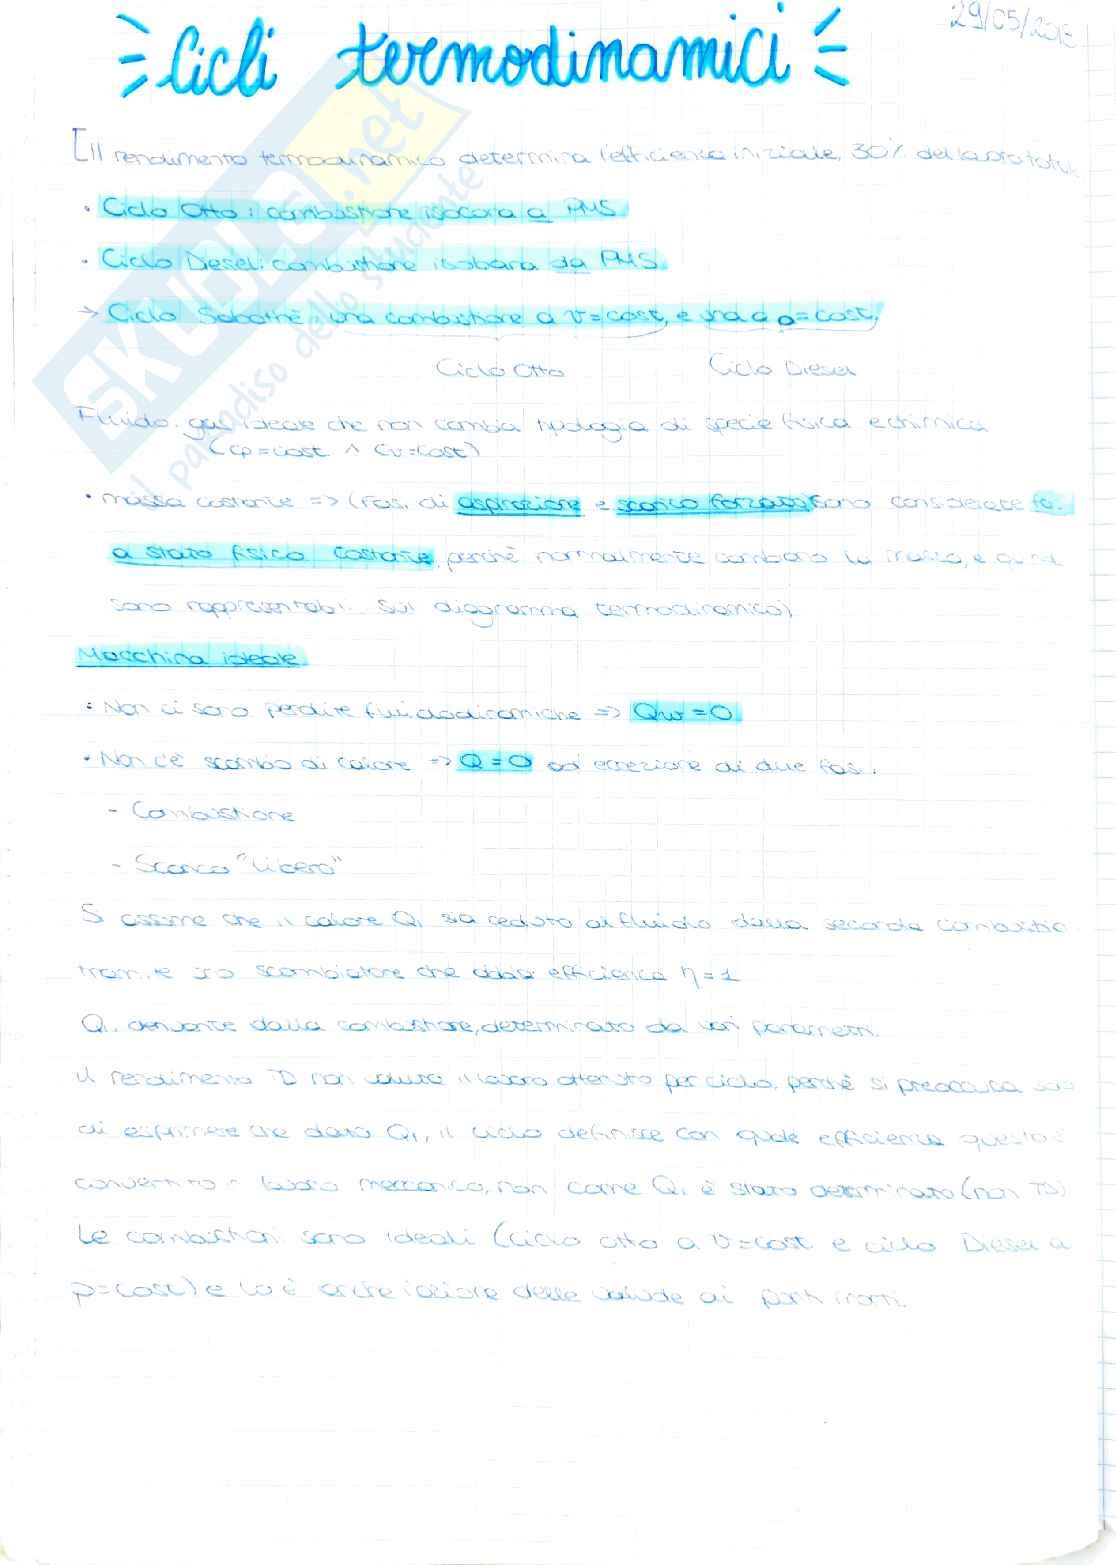 29/05/201
Cicli termodinamici
[Il rendimento termodinamico determina l'efficienza iniziale, 30% del lavoro total
• Ciclo Otto: combustione isocora a PMS.
• Ciclo Diesel: combustione isobara da PMS.
→ Ciclo Sabathè: una combustione a v=cost, e una a p=cost,
Ciclo Otto Ciclo Diesel
Fluido: gas ideale che non cambia tipologia di specie fisica e chimica
(cp=cost ∧ cv=cost)
• massa costante => (Fasi di aspirazione e scarico forzato sono considerate fa
a stato fisico costante, perché normalmente cambiano la massa, e quindi
sono rappresentabili sul diagramma termodinamico)
Macchina ideale
• Non ci sono perdite fluidodinamiche => Qw=0
• Non c'è scambio di calore => Q=0 ad eccezione di due fasi:
- Combustione
- Scarico "Libero"
Si assume che il calore Q1 sia ceduto al fluido dalla seconda combustio
tramite uno scambiatore che abbia efficienza η=1
Q1, derivante dalla combustione, determinato da vari parametri.
Il rendimento TD non valuta il lavoro ottenuto per ciclo, perché si preoccupa solo
di esprimere che dato Q1, il ciclo definisce con quale efficienza questo è
convertito in lavoro meccanico, non come Q1 è stato determinato (non TD)
Le combustioni sono ideali (ciclo otto a v=cost e ciclo Diesel a
p=cost) e lo è anche delle valvole ai punti morti.
SKUOLA.net
il paradiso dello studente